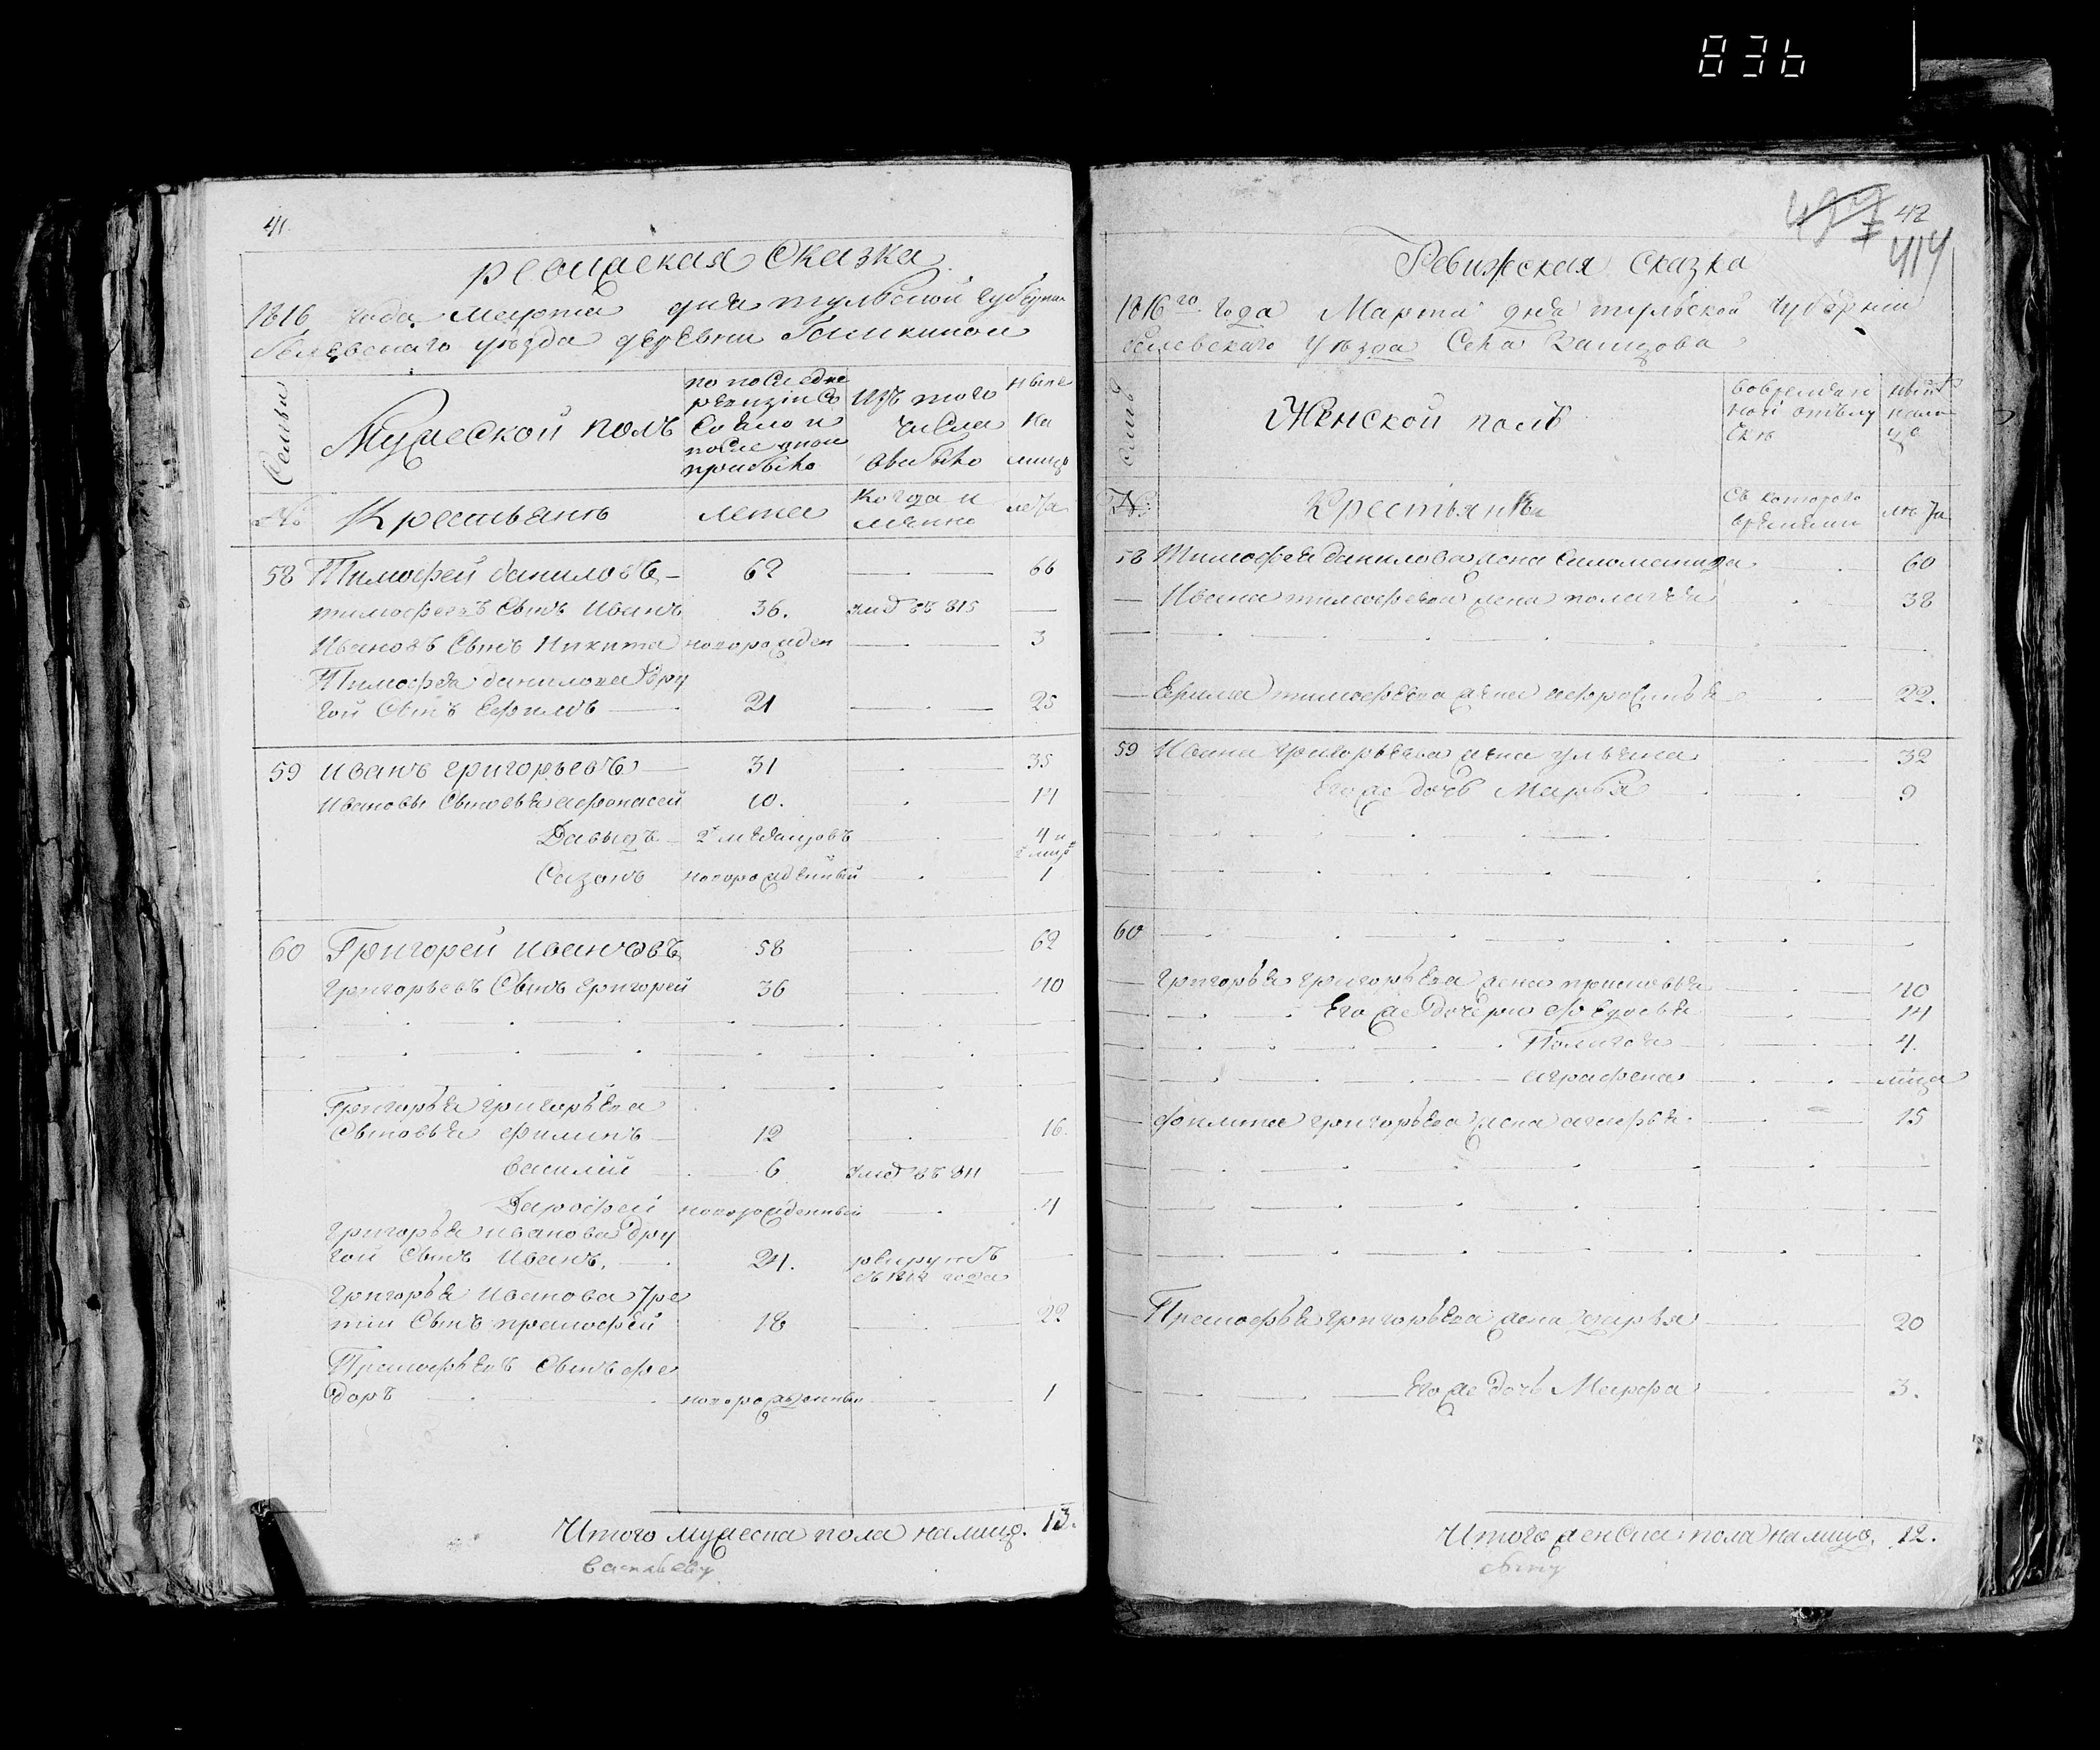 836
41.
ревижская Сказка
1816 года марта дня тульской губернии
белевского уезда деревни
Семьи
Мужеской полъ
по последне
ревизіи Со
Стояло и
после оной
прибыло
изъ того
числа
выбыло
ныне
на
лицо
№
Крестьянъ
лета
когда и
лета
58 Тимофей даниловъ 62 66
тимофеевъ Сынъ Иванъ 36. умеръ въ 815
Ивановъ Сынъ Никита новорожден 3
Тимофея данилова дру
гой Сынъ Ефимъ 21 25
59 иванъ григорьевъ 31 35
Ивановы Сыновья афонасей 10. 14
Давыдъ 2х месяцовъ 4 и
2 мца
Сазонъ новорожденный 1
60 Григорей ивановъ 58 62
Григорьевъ Сынъ григорей 36 40
Григорья григорьева
Сыновья филипъ 12 16.
василій 6 умеръ въ 811
Дарофей новорожденный 4
григорья иванова дру
гой Сынъ Иванъ. 24. рекрутъ
въ 1812 года
григорья Иванова тре
тій Сынъ прамофей 18 22
Прамофеевъ Сынъ фе
доръ новорожденный 1
Итого мужеска пола налицо. 13.
42
414
Ревижская Сказка
1816го года Марта дня тульской губерніи
белевского уезда Села
Женской полъ
№
Крестьянки
Съ которого
времени
лета
58 Тимофея данилова жена Саломанида 60
Ивана тимофеева жена поля
38
Ефима тимофеева жена афросинья 22.
59 Ивана григорьева жена ульяна 32
Его же дочь Марья 9
60
григорья григорьева жена 40
Его же дочери федосья 14
Полагея 4.
аграфена мца
филипа григорьева жена агафья 15
Прамофья григорьева жена дарья 20
Его же дочь Марфа 3.
Итого женска пола налицо. 12.